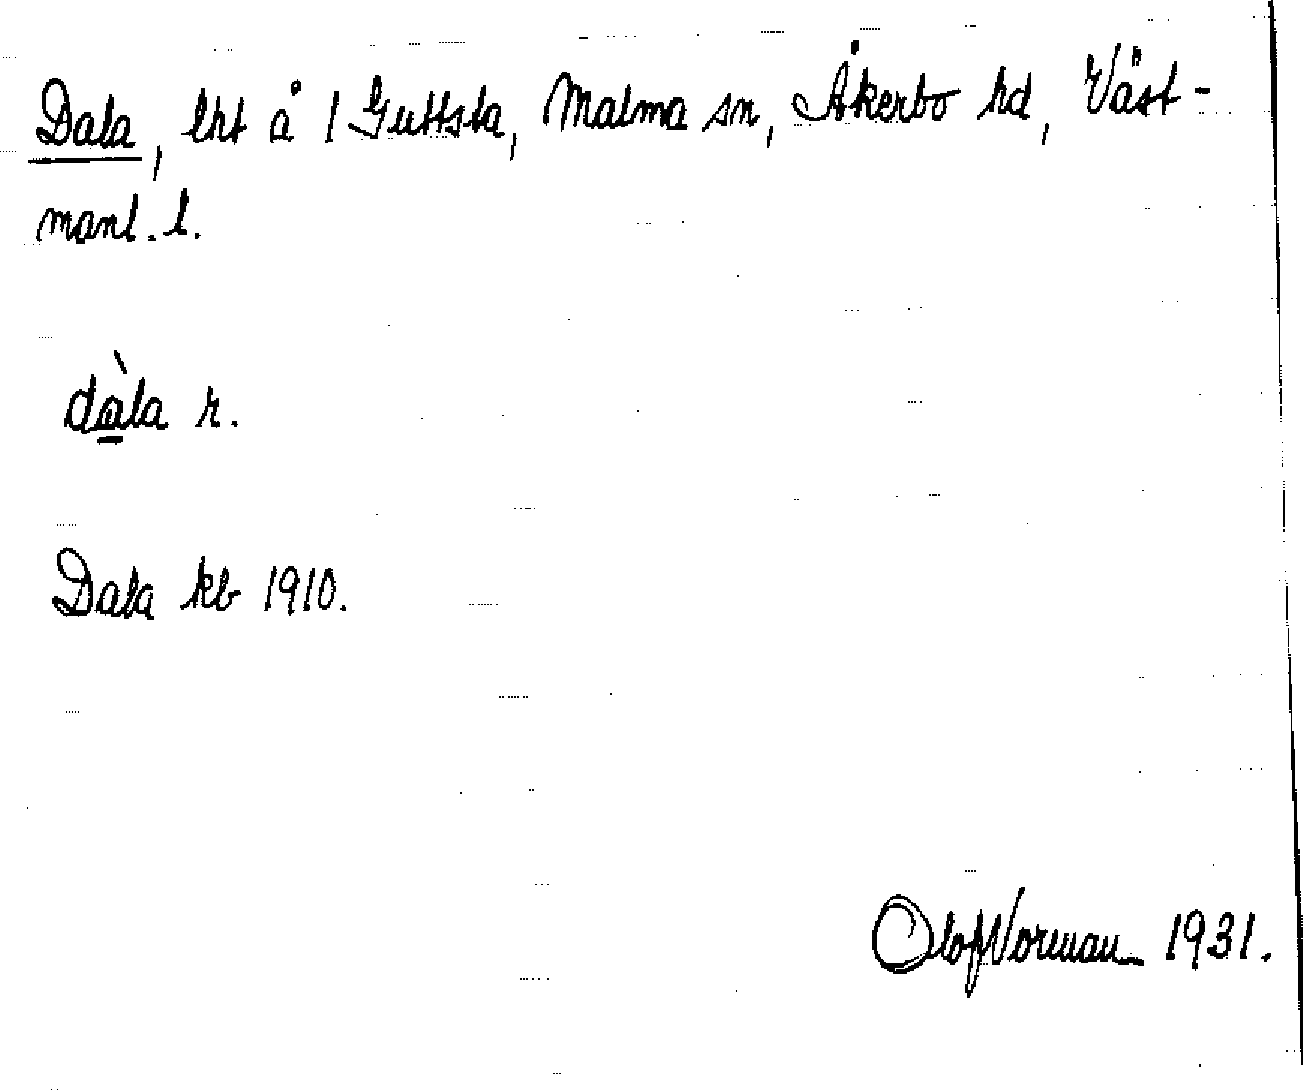 Dala, lht å 1 Guttsta, Malma sn, Åkerbo hd, Väst-
manl. l.
dàla r.
Dala kb 1910.
Olof Norman 1931.